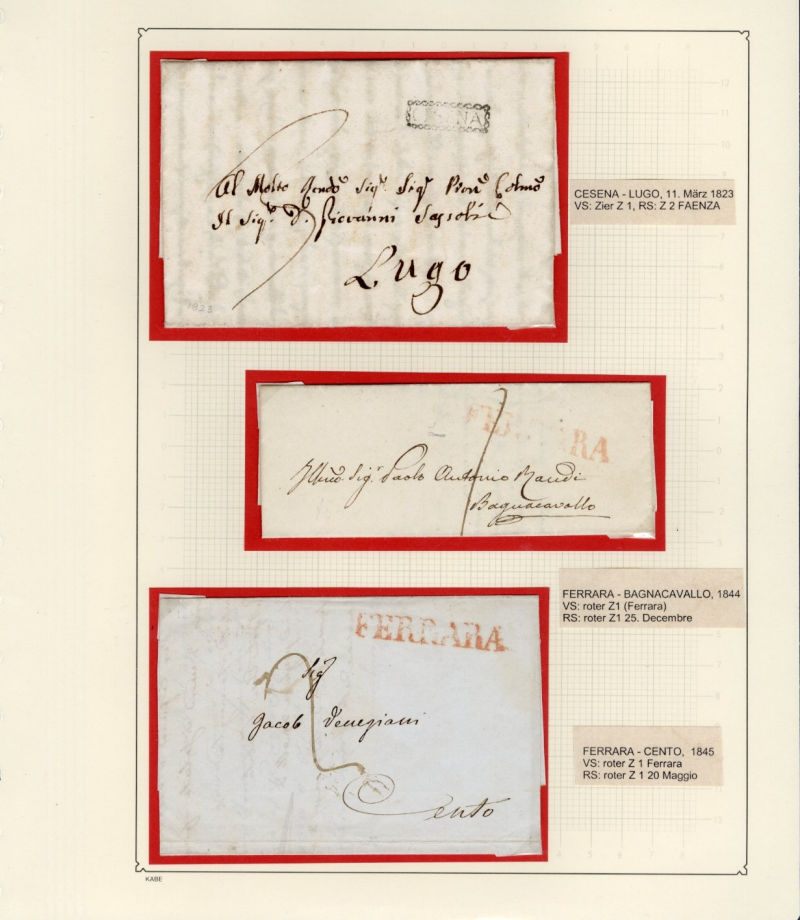 CESENA
Al Molto Rendo Sigr. Sigr Pron Colmo
Il Sigr. D. Giovanni Sassoli
Lugo
1823
CESENA - LUGO, 11. März 1823
VS: Zier Z 1, RS: Z 2 FAENZA
FERRARA
Sigr Paolo Antonio Randi
Bagnacavallo
FERRARA - BAGNACAVALLO, 1844
VS: roter Z1 (Ferrara)
RS: roter Z1 25. Decembre
FERRARA
Sigr
Jacob Venegiani
Cento
FERRARA - CENTO, 1845
VS: roter Z 1 Ferrara
RS: roter Z 1 20 Maggio
KABE